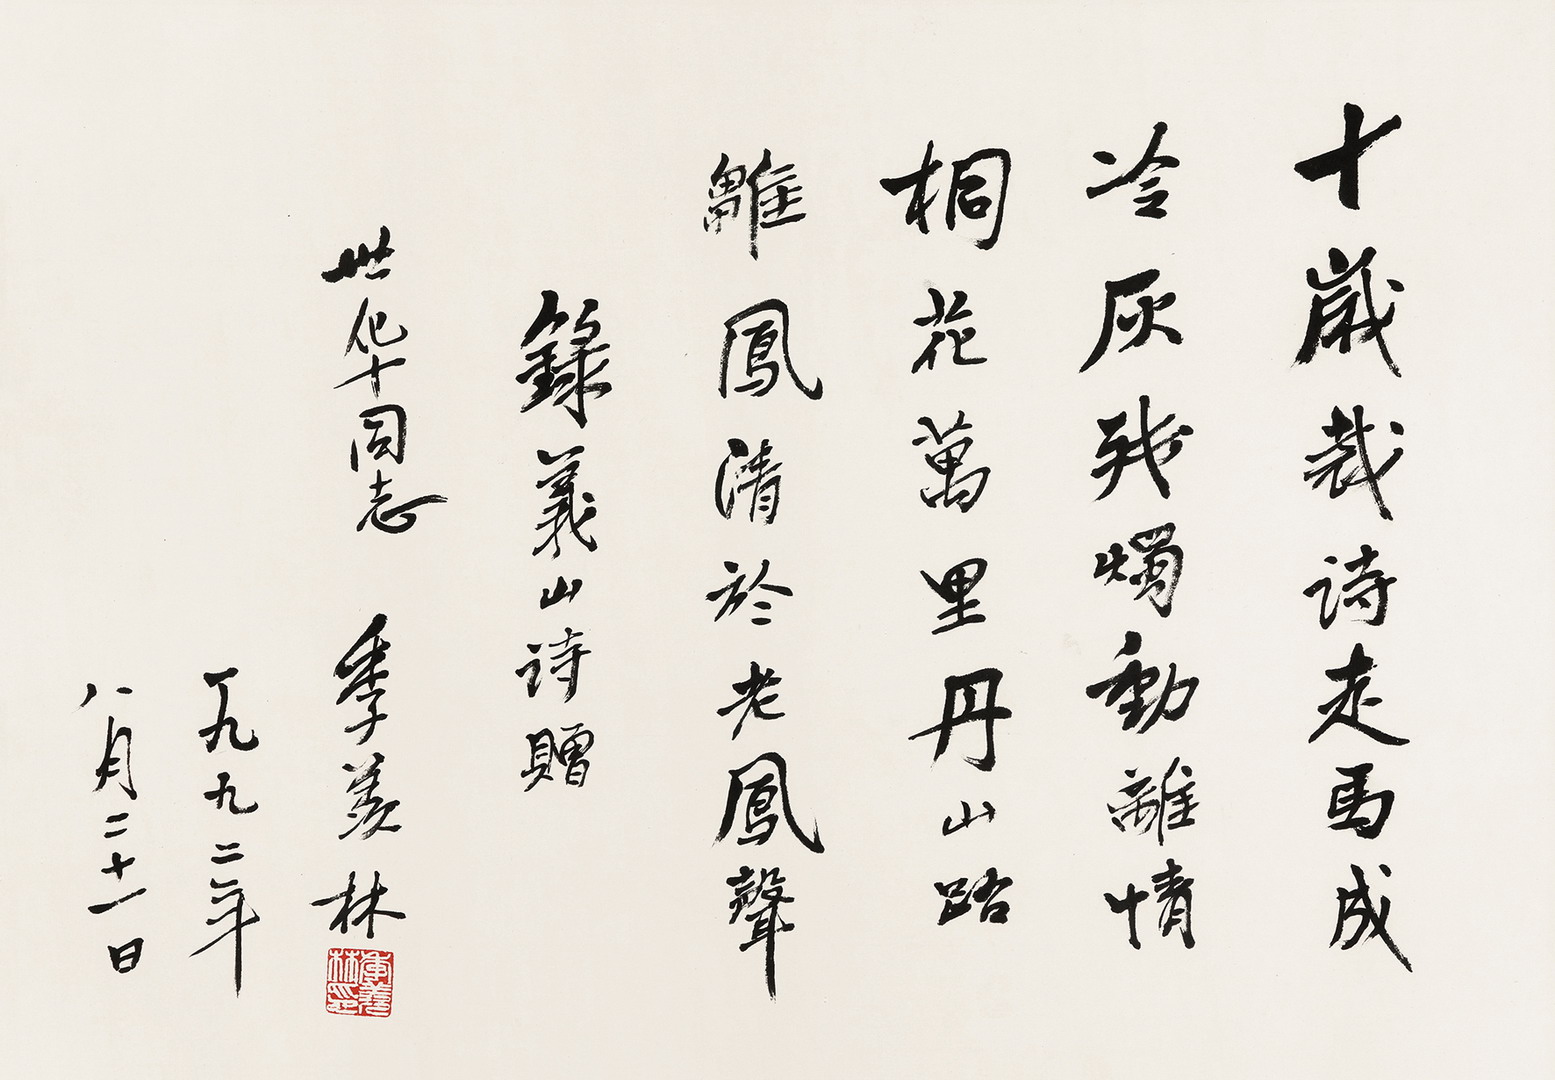 十歲裁诗走馬成
冷灰残燭動離情
桐花萬里丹山路
雛鳳清於老鳳聲
錄義山诗贈
世华同志 季羡林
一九九二年
八月二十一日
季羡林印